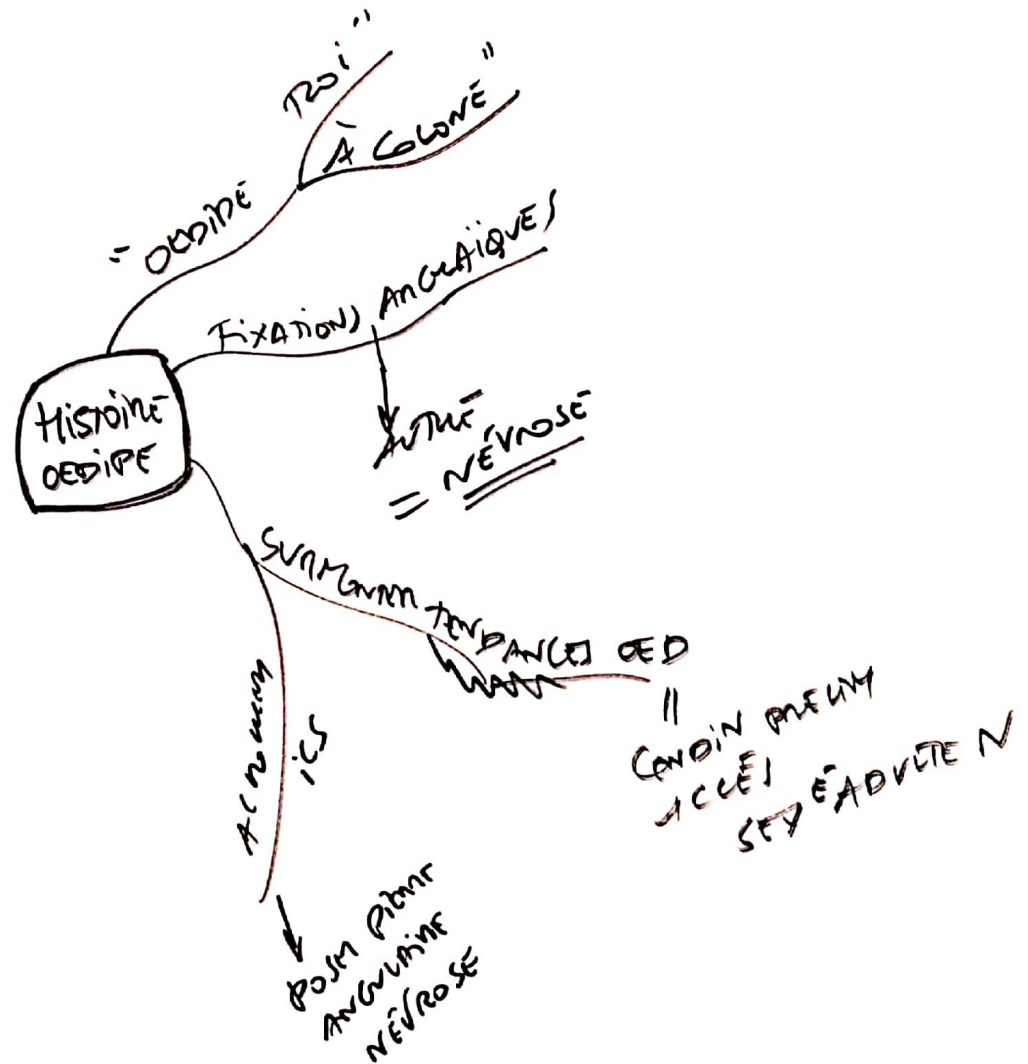 HISTOIRE
OEDIPE
" OEDIPE
ROI "
À COLONE "
FIXATIONS ARCHAÏQUES
AUTRE
= NÉVROSE
SURMONTER TENDANCES OED
=
CONDIN PRELIM
ACCÈS
SEXÉ ADULTE N
ICS
POSER PIERRE
ANGULAIRE
NÉVROSE